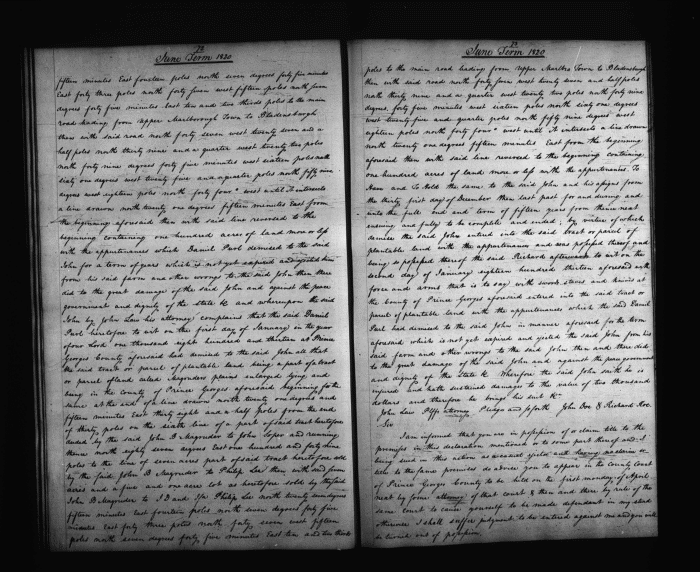 June Term 1820
fifteen minutes East fourteen poles north seven degrees forty five minutes
East forty three poles north forty seven west fifteen poles north seven
degrees forty five minutes East ten and two thirds poles to the main
road leading from Upper Marlborough Town to Bladensburgh
then with said road north forty seven west twenty seven and a
half poles north thirty nine and a quarter west twenty two poles
north forty nine degrees forty five minutes west sixteen poles north
sixty one degrees west twenty five and a quarter poles north fifty nine
degrees west eighteen poles north forty four° west until it intersects
a line drawn north twenty one degrees fifteen minutes East from
the beginning aforesaid then with said line reversed to the
beginning containing one hundred acres of land more or less
with the appurtenances which Daniel Parl demised to the said
John for a term of years which is not yet expired and ejected him
from his said farm and other wrongs to the said John then there
did to the great damage of the said John and against the peace
government and dignity of the state &c and whereupon the said
John by John Law his attorney complains that the said Daniel
Parl heretofore to wit on the first day of January in the year
of our Lord one thousand eight hundred and thirteen at Prince
Georges County aforesaid had demised to the said John all that
the said tract or parcel of plantable land being a part of a tract
or parcel of land called Magruders plains enlarged lying and
being in the county of Prince Georges aforesaid beginning for the
same at the end of a line drawn north twenty one degrees and
fifteen minutes East thirty eight and a half poles from the end
of thirty poles on the sixth line of a part of said tract heretofore
deeded by the said John B Magruder to John and running
thence north eighty seven degrees East one hundred and forty nine
poles to the line of seven acres part of said tract heretofore sold
by the said John B. Magruder to Philip Lee then with said seven
acres and a five and one acre lot as heretofore sold by the said
John B Magruder to J D and Philip Lee north twenty seven degrees
fifteen minutes east fourteen poles north seven degrees forty five
minutes East forty three poles north forty seven west fifteen
poles north seven degrees forty five minutes East ten and two thirds
June Term 1820
poles to the main road leading from Upper Marlbro Town to Bladensburgh
then with said road north forty seven west twenty seven and half poles
north thirty nine and a quarter west twenty two poles north forty nine
degrees forty five minutes west sixteen poles north sixty one degrees
west twenty five and quarter poles north fifty nine degrees west
eighteen poles north forty four° west until it intersects a line drawn
north twenty one degrees fifteen minutes East from the beginning
aforesaid then with said line reversed to the beginning containing
one hundred acres of land more or less with the appurtenances To
Have and To Hold the same to the said John and his assigns from
the thirty first day of December then last past for and during and
unto the full end and term of fifteen years from thence next
ensuing and fully to be complete and ended by virtue of which
demise the said John entered into the said tract or parcel of
plantable land with the appurtenances and was possessed thereof and
being so possessed thereof the said Richard afterwards to wit on the
second day of January eighteen hundred thirteen aforesaid with
force and arms that is to say with swords staves and knives at
the County of Prince Georges aforesaid entered into the said tract or
parcel of plantable land with the appurtenances which the said Daniel
Parl had demised to the said John in manner aforesaid for the term
aforesaid which is not yet expired and ejected the said John from his
said farm and other wrongs to the said John then and there did
to the great damage of the said John and against the peace government
and dignity of the state &c Wherefore the said John saith he is
injured and hath sustained damages to the value of two thousand
dollars and therefore he brings his suit &c
John Law Plffs attorney Pledges and so forth John Doe & Richard Roe
Sir
I am informed that you are in possession of or claim title to the
premises in this declaration mentioned or to some part thereof and I
being sued in this action as casual ejector and having no claim or
title to the same premises do advise you to appear in the county court
of Prince Georges County to be held on the first monday of April
next by some attorney of that court & then and there by rule of the
same court to cause yourself to be made defendant in my stead
otherwise I shall suffer judgment to be entered against me and you will
be turned out of possession.